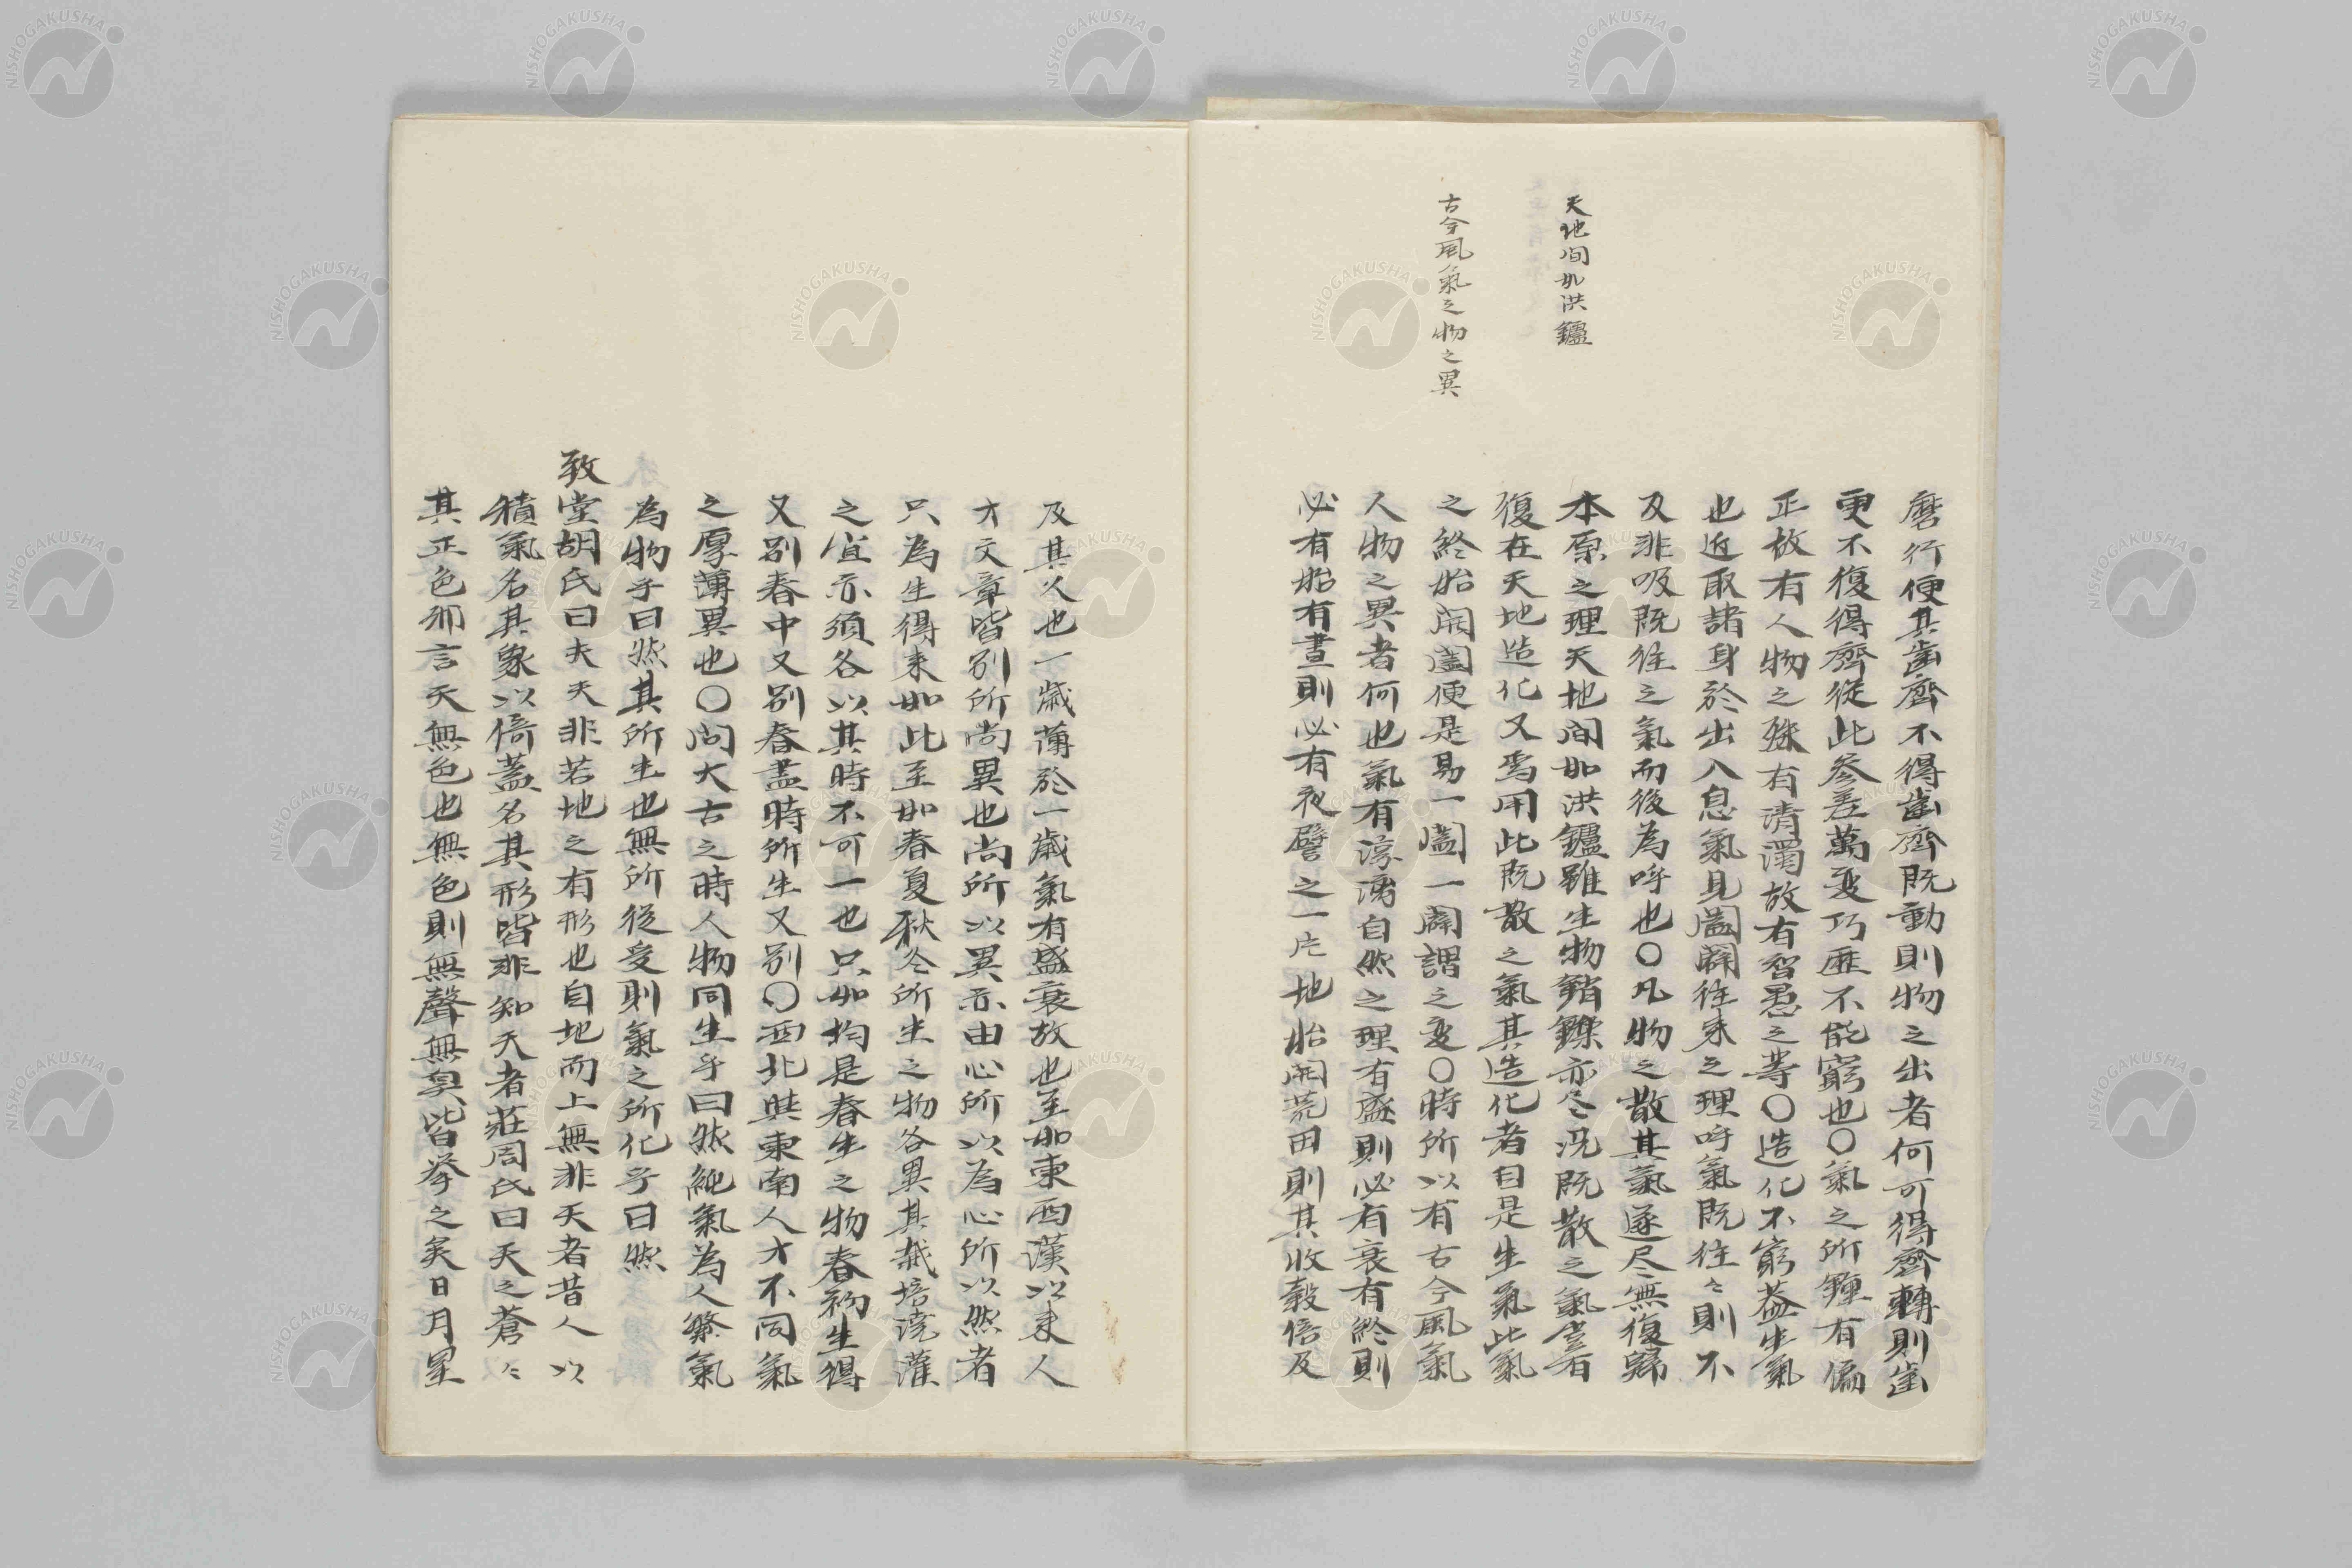 天地間如洪鑪
古今風氣之物之異
磨行便其齒齊不得齒齊既動則物之出者何可得齊轉則齒
更不復得齊從此參差萬變巧歷不能窮也○氣之所鍾有偏
正故有人物之殊有清濁故有智愚之等○造化不窮蓋生氣
也近取諸身於出入息氣見闔闢往來之理呼氣既往々則不
及非吸既往之氣而後為呼也○凡物之散其氣遂尽無復歸
本原之理天地間如洪鑪雖生物銷鑠亦尽况既散之氣豈有
復在天地造化又焉用此既散之氣其造化者自是生氣此氣
之終始開闔便是易一闔一闢謂之変○時所以有古今風氣
人物之異者何也氣有淳漓自然之理有盛則必有衰有終則
必有始有晝則必有夜譬之一片地始開荒田則其收穀倍及
及其久也一歲薄於一歲氣有盛衰故也至如東西漢以来人
才文章皆別所尚異也尚所以異亦由心所以為心所以然者
只為生得来如此至如春夏秋冬所生之物各異其栽培澆灌
之宜亦須各以其時不可一也只如均是春生之物春初生得
又別春中又別春盡時所生又別○西北與東南人才不同氣
之厚薄異也○問太古之時人物同生乎曰然純氣為人繁氣
為物乎曰然其所生也無所從受則氣之所化乎曰然
致堂胡氏曰夫天非若地之有形也自地而上無非天者昔人以
積氣名其象以倚蓋名其形皆非知天者莊周氏曰天之蒼々
其正色邪言天無色也無色則無聲無臭皆挙之矣日月星
NISHOGAKUSHA